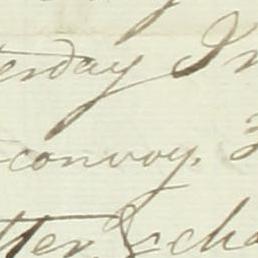 erday I
convoy.
tter, & cha